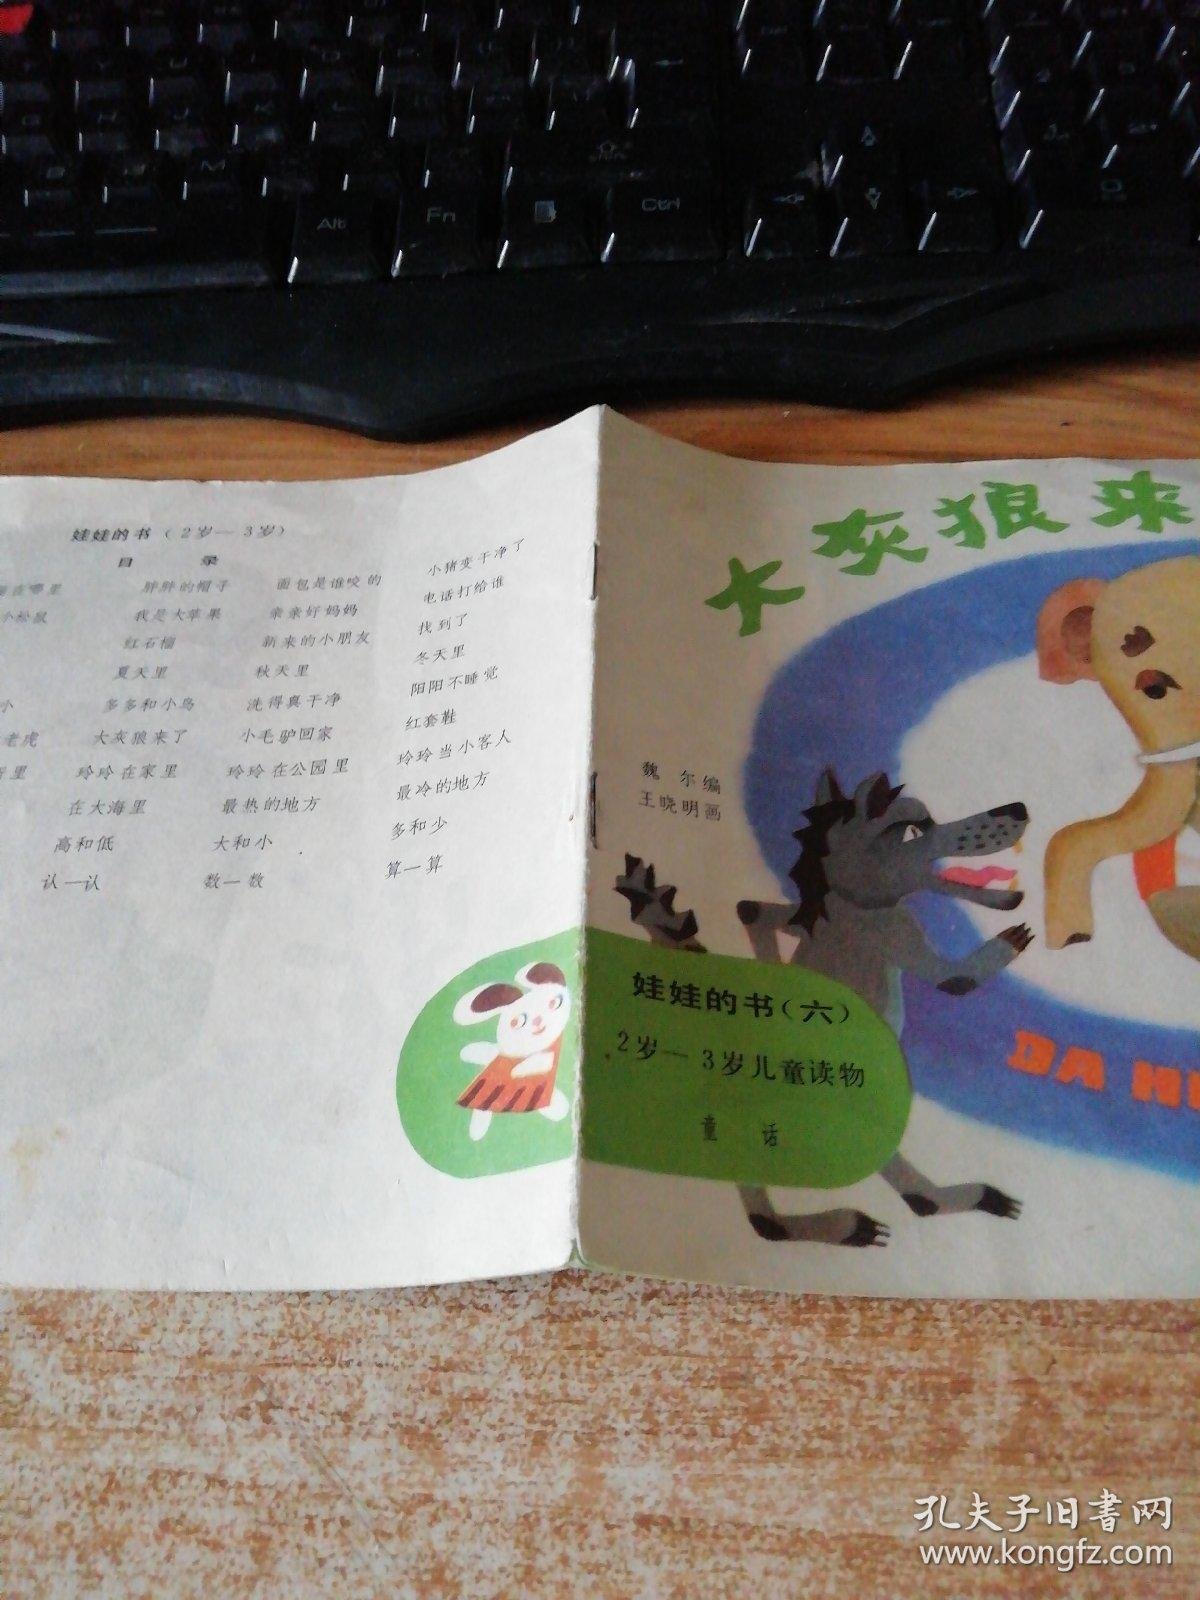 Alt
Fn
Ctrl
娃娃的书（2岁—3岁）
目 录
哪里 胖胖的帽子 面包是谁咬的 小猪变干净了
小松鼠 我是大苹果 亲亲好妈妈 电话打给谁
红石榴 新来的小朋友 找到了
夏天里 秋天里 冬天里
小 多多和小鸟 洗得真干净 阳阳不睡觉
老虎 大灰狼来了 小毛驴回家 红套鞋
里 玲玲在家里 玲玲在公园里 玲玲当小客人
在大海里 最热的地方 最冷的地方
高和低 大和小 多和少
认一认 数一数 算一算
大灰狼来
魏 尔编
王晓明画
娃娃的书（六）
2岁—3岁儿童读物
童 话
DA HU
孔夫子旧书网
www.kongfz.com